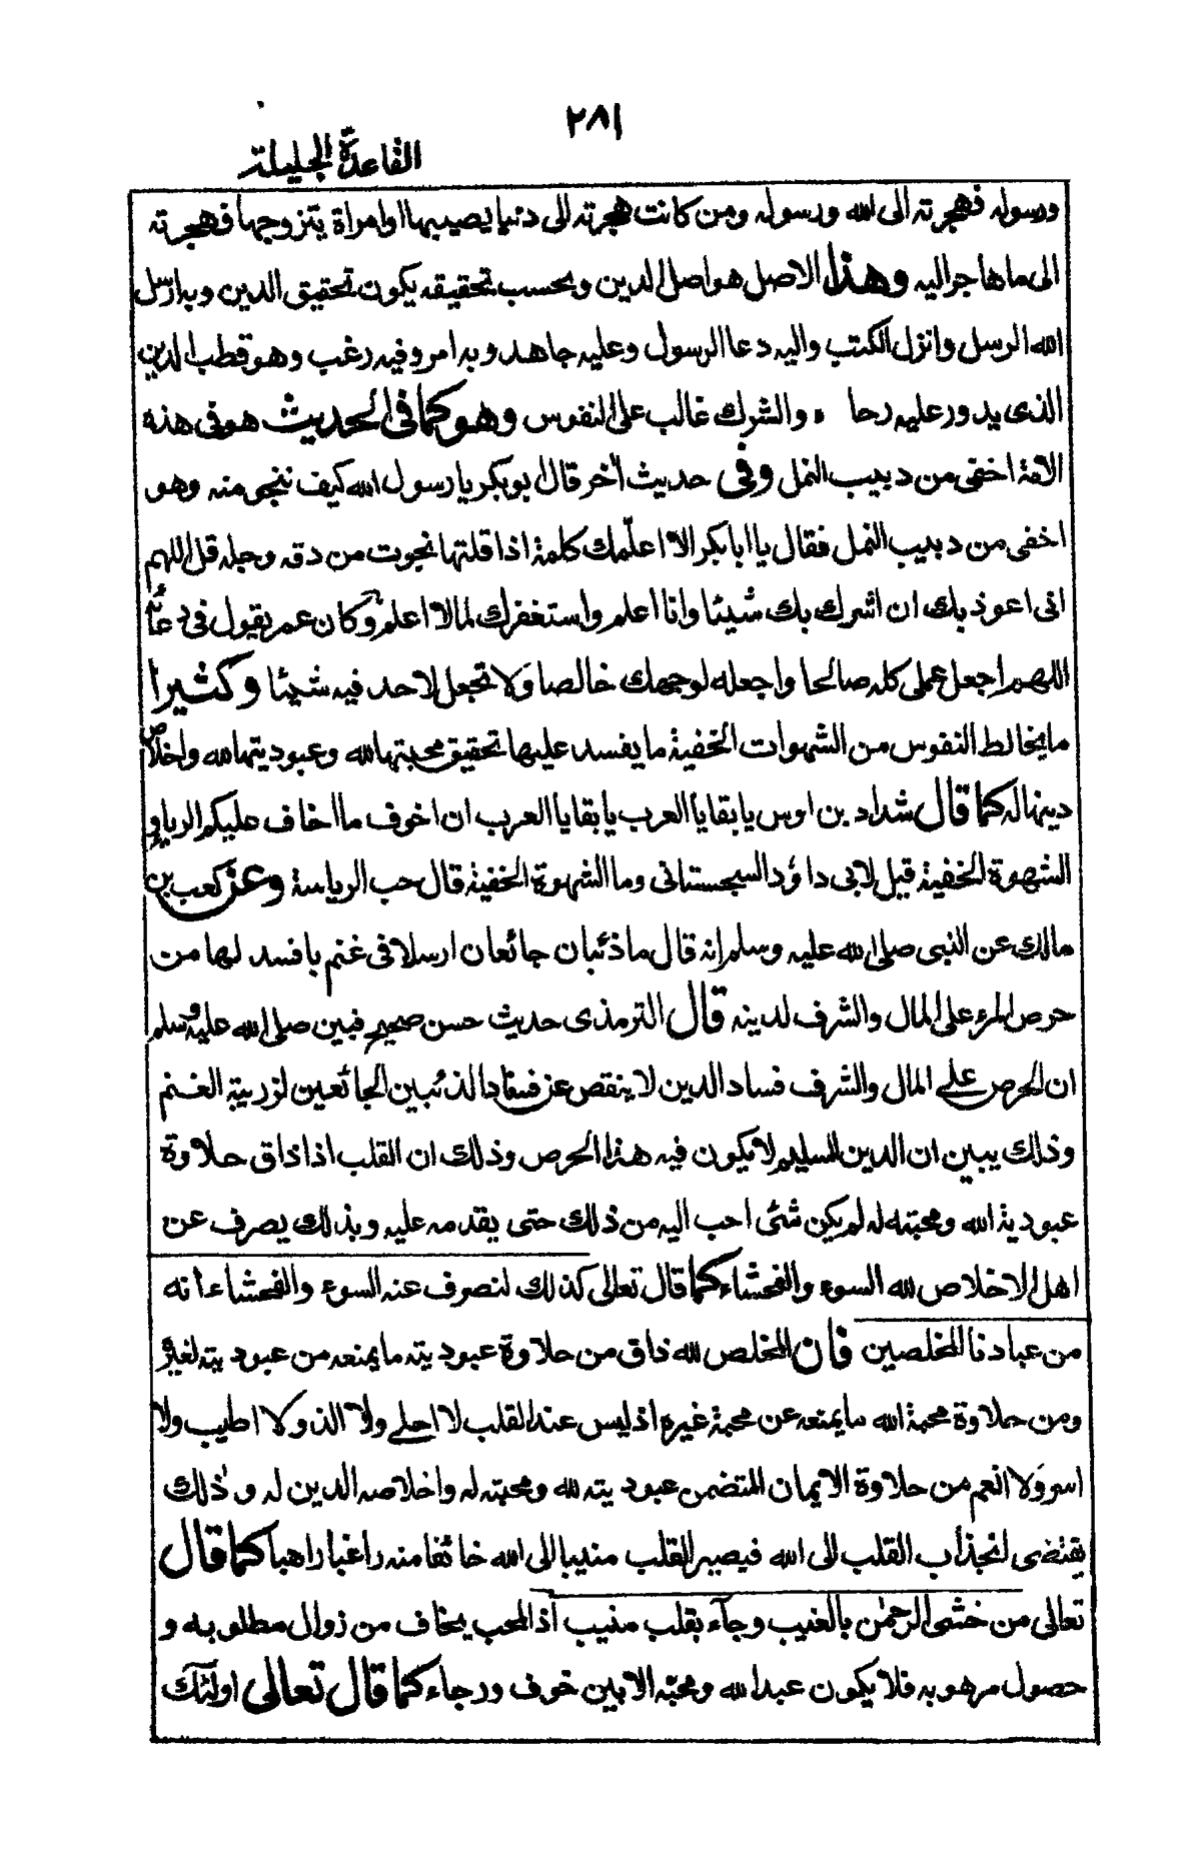 ٢٨١
القاعدة الجليلة
ورسوله فهجرته الى الله ورسوله ومن كانت هجرته الى دنيا يصيبها او امراة يتزوجها فهجرته
الى ما هاجر اليه وهذا الاصل هو اصل الدين وبحسب تحقيقه يكون تحقيق الدين وبه ارسل
الله الرسل وانزل الكتب واليه دعا الرسول وعليه جاهد وبه امر وفيه رغب وهو قطب الدين
الذى يدور عليه رحا ٠ والشرك غالب على النفوس وهو كما فى الحديث هو فى هذه
الامة اخفى من دبيب النمل وفى حديث آخر قال ابو بكر يا رسول الله كيف ننجو منه وهو
اخفى من دبيب النمل فقال يا ابا بكر الا اعلّمك كلمة اذا قلتها نجوت من دقه وجله قل اللهم
انى اعوذ بك ان اشرك بك شيئا وانا اعلم واستغفرك لما لا اعلم وكان عمر يقول فى دعائه
اللهم اجعل عملى كله صالحا واجعله لوجهك خالصا ولا تجعل لاحد فيه شيئا وكثيرا
ما يخالط النفوس من الشهوات الخفية ما يفسد عليها تحقيق محبتها لله وعبوديتها لله واخلاص
دينها له كما قال شداد بن اوس يا بقايا العرب يا بقايا العرب ان اخوف ما اخاف عليكم الرياء و
الشهوة الخفية قيل لابى داؤد السجستانى وما الشهوة الخفية قال حب الرياسة وعن كعب بن
مالك عن النبى صلى الله عليه وسلم انه قال ما ذئبان جائعان ارسلا فى غنم بافسد لها من
حرص المرء على المال والشرف لدينه قال الترمذى حديث حسن صحيح فبين صلى الله عليه وسلم
ان الحرص على المال والشرف فساد الدين لا ينقص عن فساد الذئبين الجائعين لزريبة الغنم
وذلك يبين ان الدين السليم لا يكون فيه هذا الحرص وذلك ان القلب اذا ذاق حلاوة
عبودية الله ومحبته له لم يكن شئ احب اليه من ذلك حتى يقدمه عليه وبذلك يصرف عن
اهل الاخلاص لله السوء والفحشاء كما قال تعالى كذلك لنصرف عنه السوء والفحشاء انه
من عبادنا المخلصين فان المخلص لله ذاق من حلاوة عبوديته ما يمنعه من عبوديته لغيره
ومن حلاوة محبة الله ما يمنعه عن محبة غيره اذ ليس عند القلب لا احلى ولا الذ ولا اطيب ولا
اسر ولا انعم من حلاوة الايمان المتضمن عبوديته لله ومحبته له واخلاصه الدين له وذلك
يقتضى انجذاب القلب الى الله فيصير القلب منيبا الى الله خائفا منه راغبا راهبا كما قال
تعالى من خشى الرحمٰن بالغيب وجآء بقلب منيب اذ المحب يخاف من زوال مطلوبه و
حصول مرهوبه فلا يكون عبد الله ومحبّه الا بين خوف ورجاء كما قال تعالى اولئك